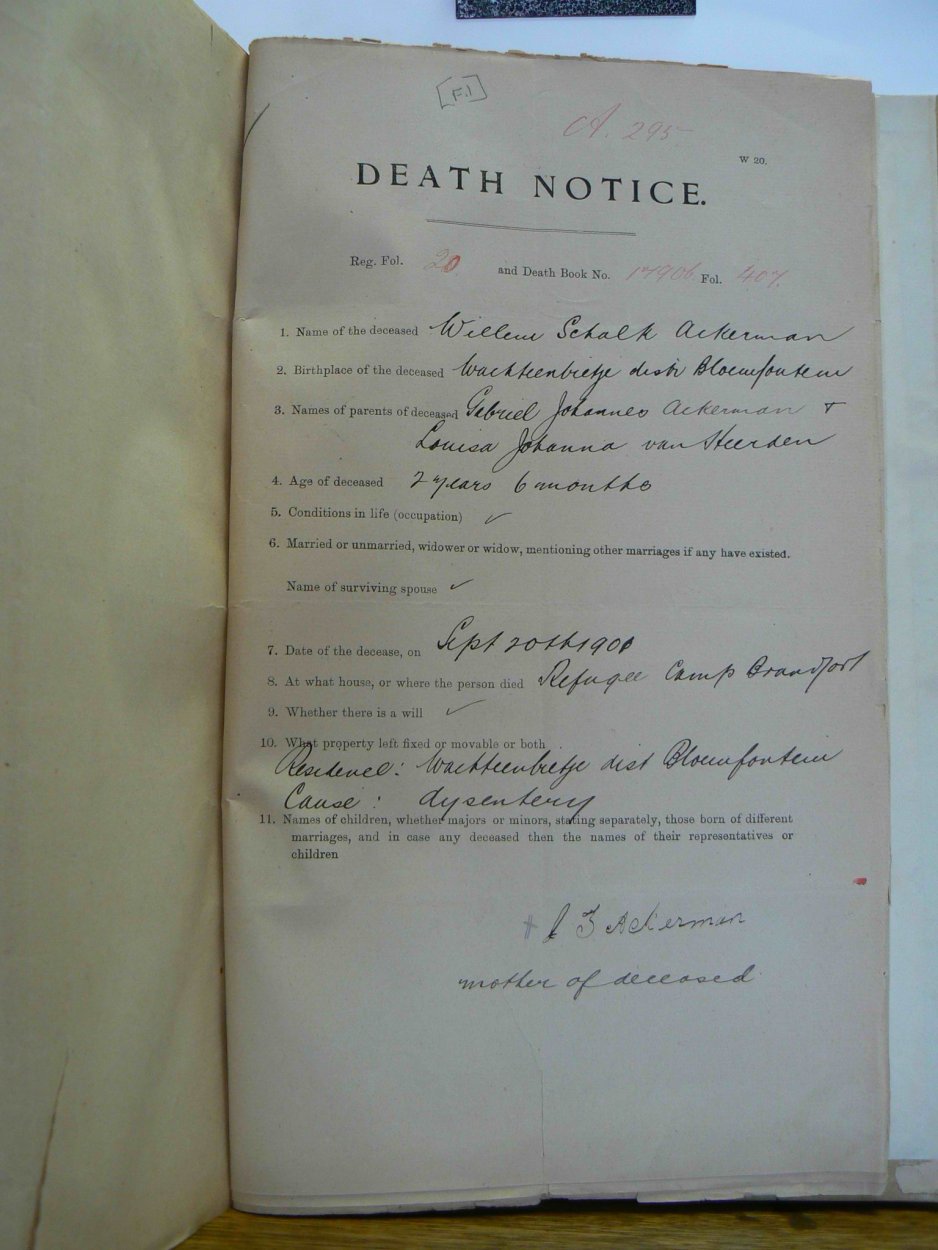 F.1
A. 295
W 20.
DEATH NOTICE.
Reg. Fol. 20 and Death Book No. 17906 Fol. 407.
1. Name of the deceased Willem Schalk Ackerman
2. Birthplace of the deceased Wachteenbietje distr Bloemfontein
3. Names of parents of deceased Gabriel Johannes Ackerman +
Louisa Johanna van Heerden
4. Age of deceased 2 years 6 months
5. Conditions in life (occupation) ✓
6. Married or unmarried, widower or widow, mentioning other marriages if any have existed.
Name of surviving spouse ✓
7. Date of the decease, on Sept 20th 1901
8. At what house, or where the person died Refugee Camp Brandfort
9. Whether there is a will ✓
10. What property left fixed or movable or both .
Residence: Wachteenbietje dist Bloemfontein
Cause : dysentery
11. Names of children, whether majors or minors, stating separately, those born of different
marriages, and in case any deceased then the names of their representatives or
children
Ackerman
mother of deceased